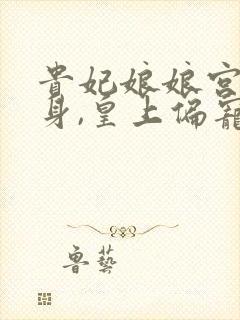 貴妃娘娘宮
身,皇上偏寵
魯藝